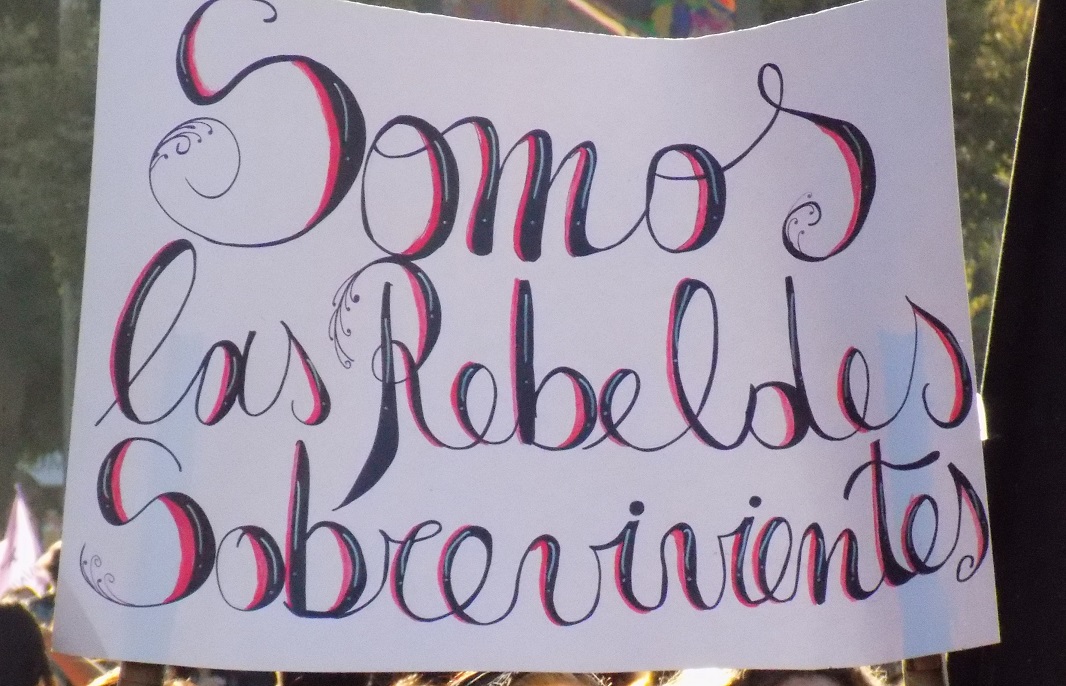 Somos
las Rebeldes
Sobrevivientes